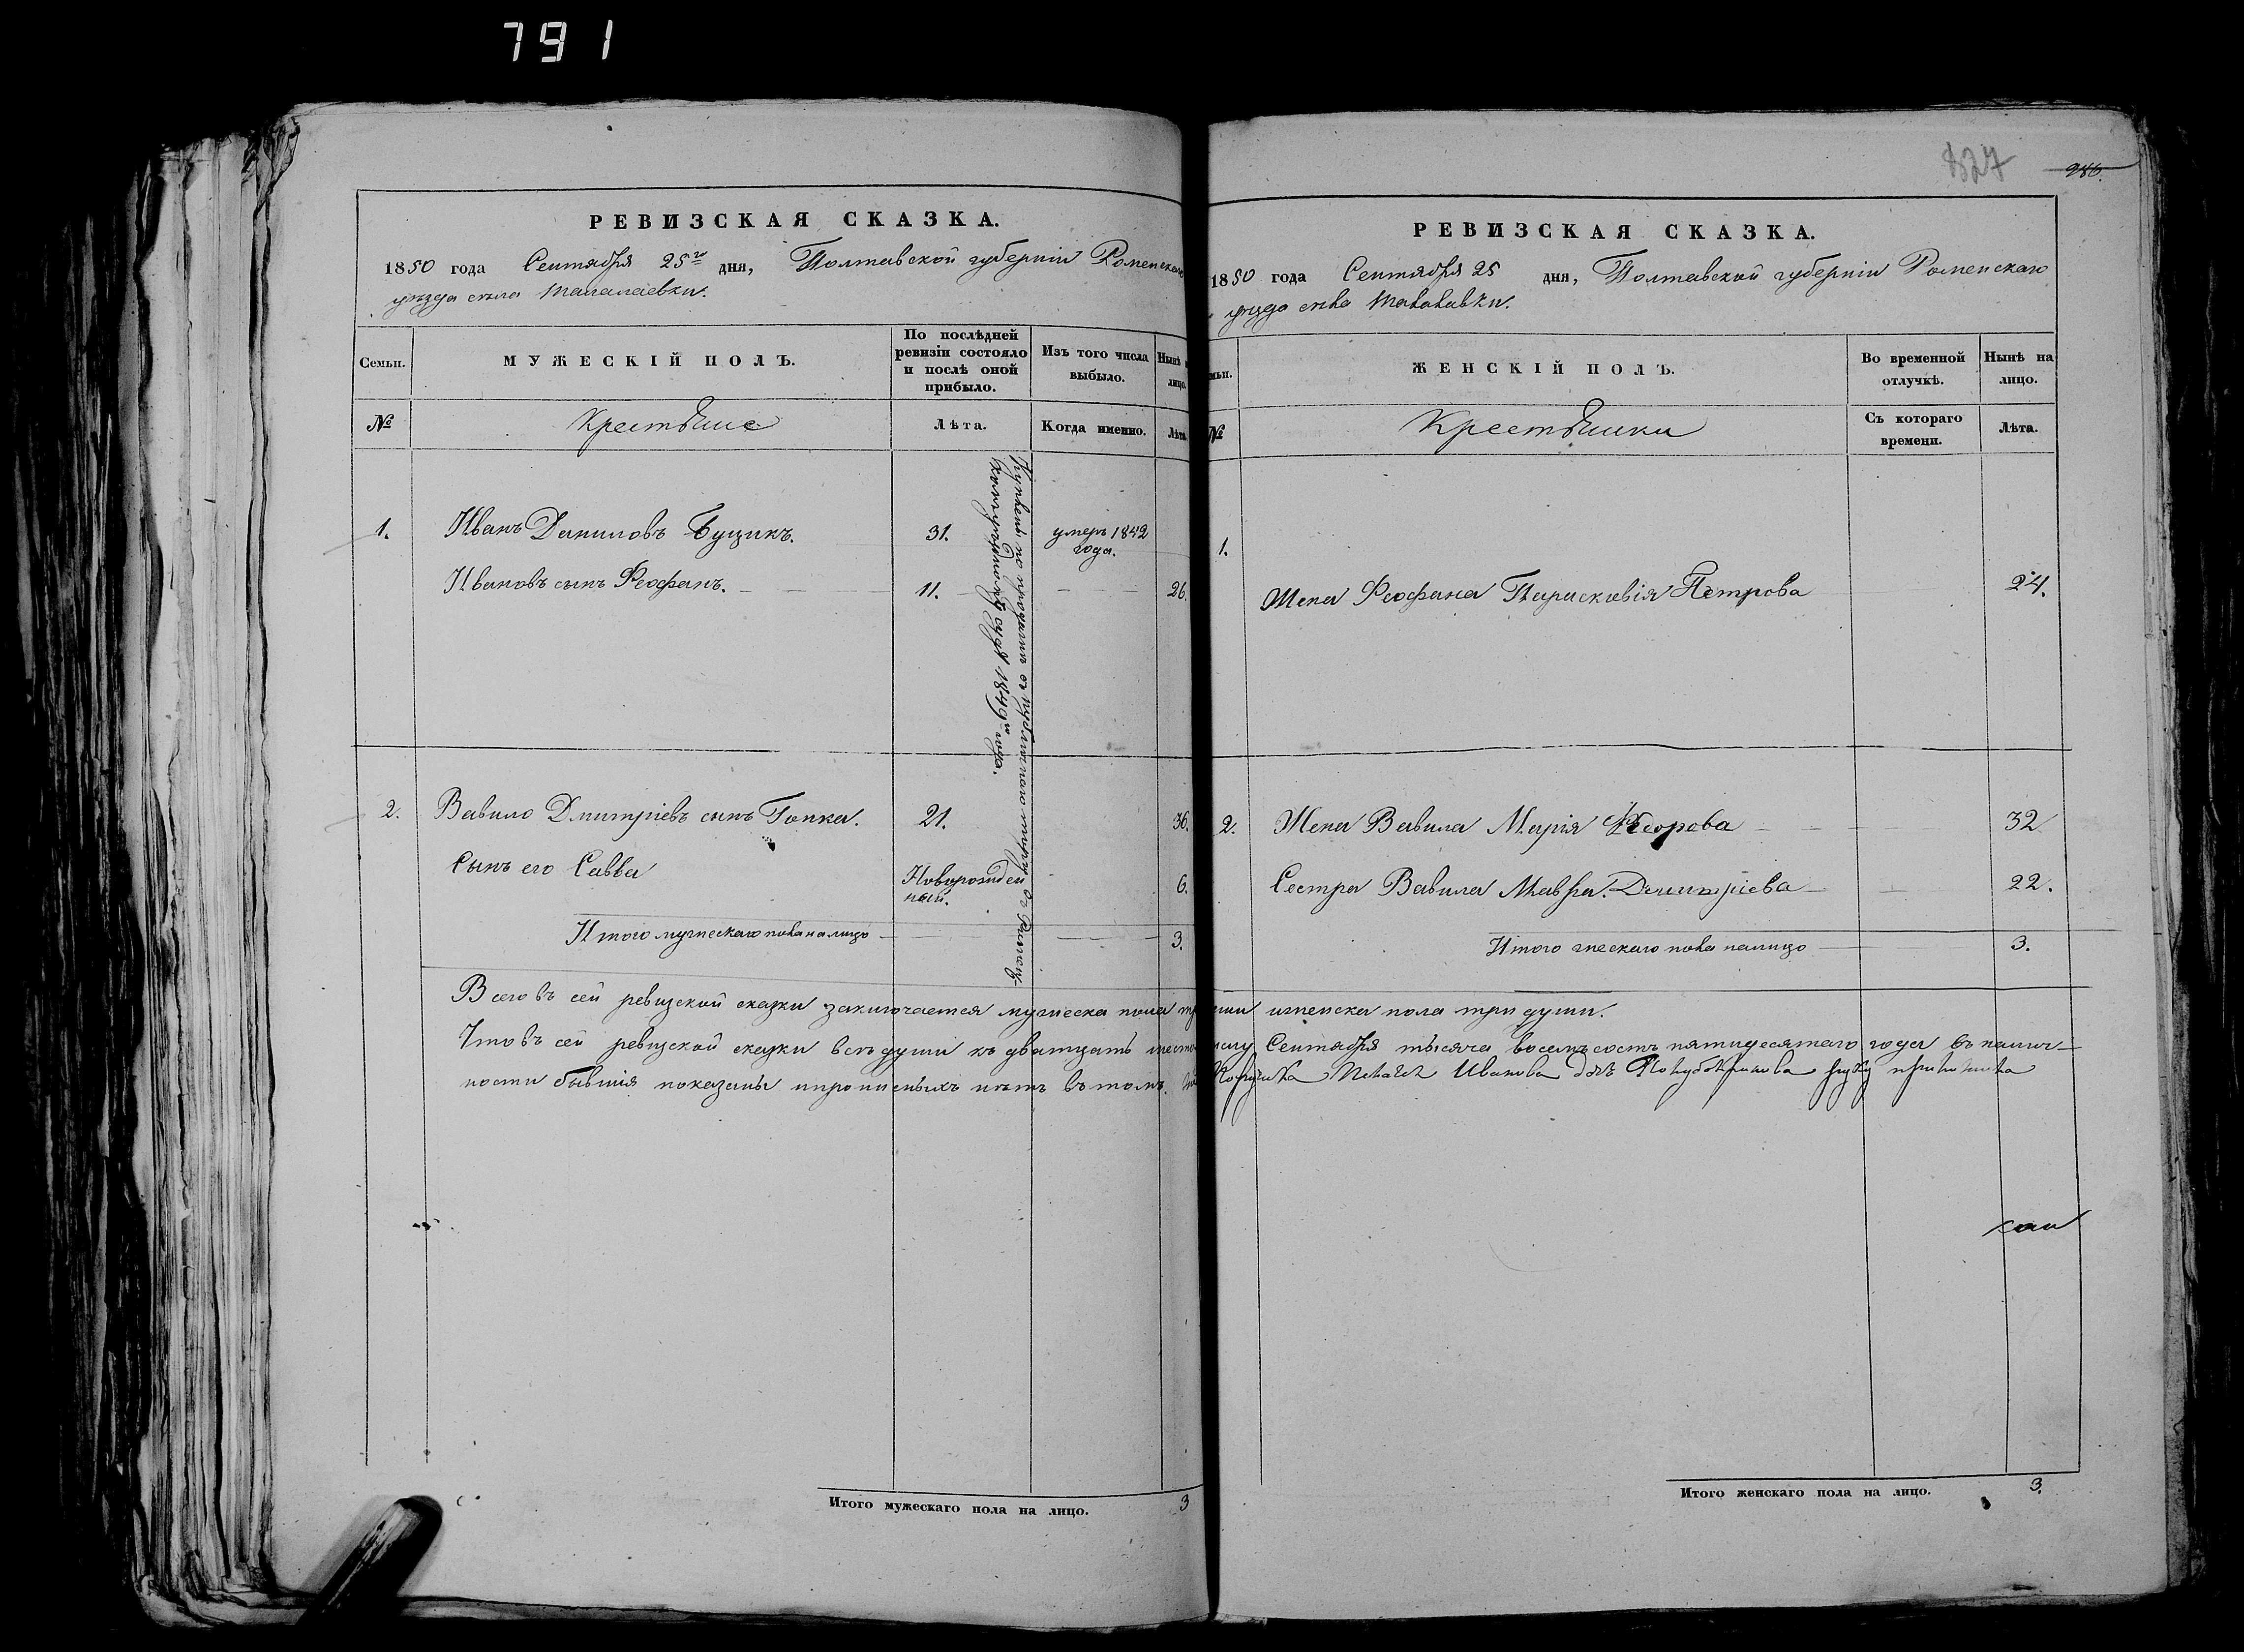 791
РЕВИЗСКАЯ СКАЗКА.
1850 года Сентября 25го дня, Полтавской губерніи Роменскаго
уезда села Талалаевки.
Семьи.
МУЖЕСКІЙ ПОЛЪ.
По послѣдней
ревизіи состояло
и послѣ оной
прибыло.
Изъ того числа
выбыло.
Нынѣ
лицо.
№
Крестьяне
Лѣта.
Когда именно.
Лѣта
1.
Иванъ Даниловъ Буцикъ.
31.
умеръ 1842
года.
Ивановъ сынъ Феофанъ.
11.
26.
Куплены по продажи съ публичнаго торгу въ
суде 1849го года.
2.
Вавило Дмитріевъ сынъ Гопка.
21.
36.
Сынъ его Савва
Новорожден
ный.
6.
Итого мужескаго пола на лицо
3.
Всего въ сей ревизской сказки заключается мужеска пола
Что въ сей ревизской сказки всѣ души къ дватцать
ности бывшія показаны и прописныхъ нѣтъ въ томъ.
Итого мужескаго пола на лицо.
3
827
286.
РЕВИЗСКАЯ СКАЗКА.
1850 года Сентября 25 дня, Полтавской губерніи Роменскаго
уезда села Талалаевки.
мьи.
ЖЕНСКІЙ ПОЛЪ.
Во временной
отлучкѣ.
Нынѣ на
лицо.
№
Крестьянки
Съ котораго
времени.
Лѣта.
1.
Жена Феофана Параскивія Петрова
24.
2.
Жена Вавила Марія Федорова
32
Сестра Вавила Мавра Дмитріева
22.
Итого женскаго пола налицо
3.
и женска пола три души.
числу Сентября тысяча восемьсотъ пятидесятаго года въ налич-
Иванова руку приложила
Итого женскаго пола на лицо.
3.